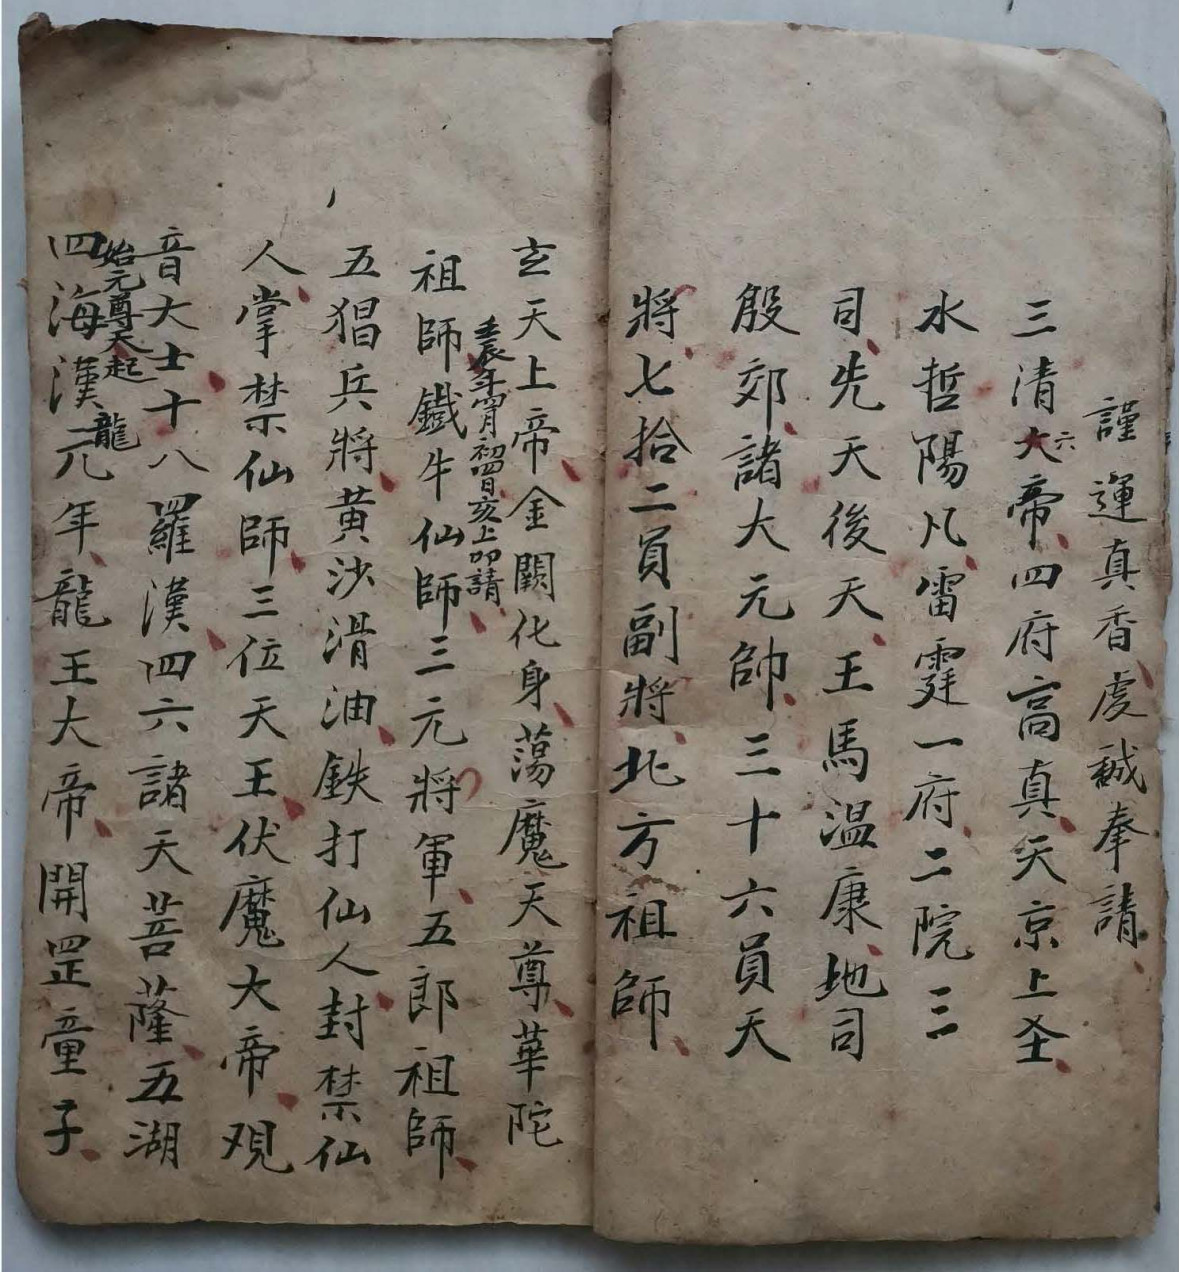 謹運真香虔誠奉請
三清大六帝四府高真天京上圣
水哲陽凡雷霆一府二院三
司先天後天王馬温康地司
殷郊諸大元帥三十六員天
將七拾二員副將北方祖師
玄天上帝金闕化身蕩魔天尊華陀
年宵月初四日亥上叩請
祖師鐵牛仙師三元將軍五郎祖師
五猖兵將黄沙滑油鉄打仙人封禁仙
人掌禁仙師三位天王伏魔大帝观
音大士十八羅漢四六諸天菩薩五湖
始元尊天起龍
四海漢元年龍王大帝開罡童子